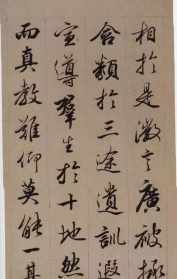 相於是微言廣被拯
含類於三途遺訓遐
宣導群生於十地然
而真教難仰莫能一其